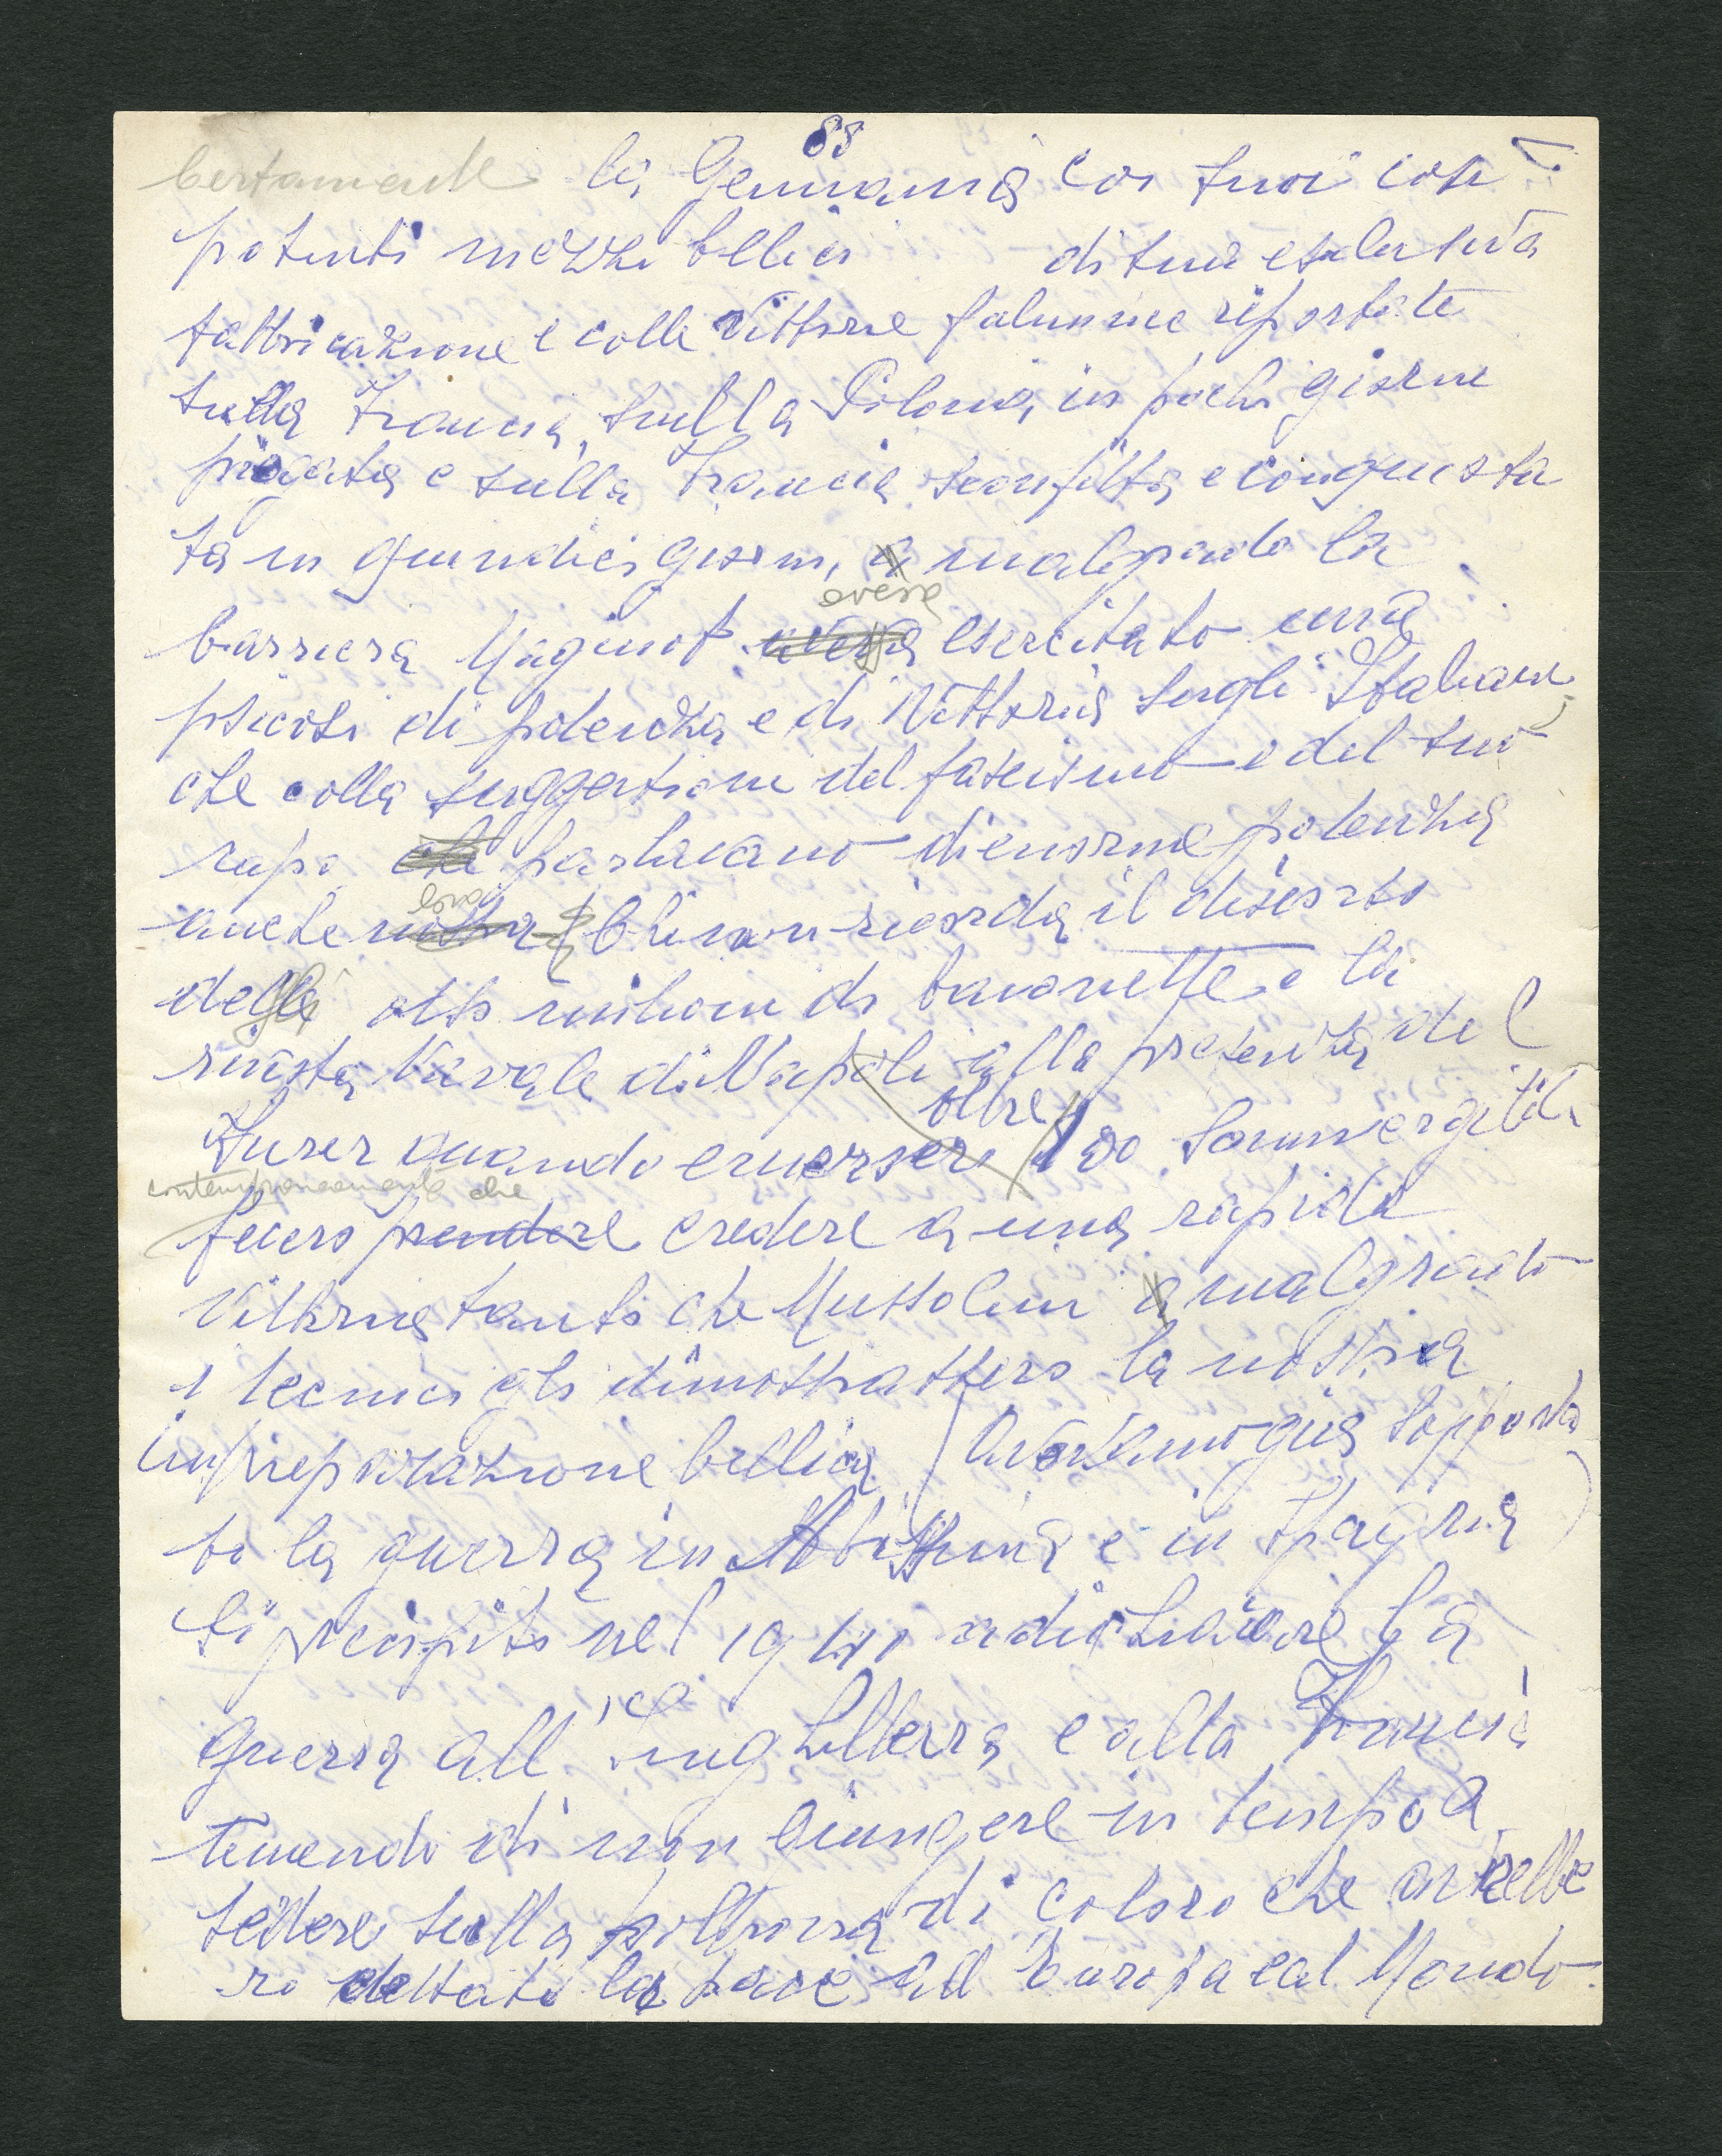 88
Certamente la Germania coi suoi così
potenti mezzi bellici di sua esclusiva
fabbricazione e colle Vittorie fulminee riportate
sulla Francia, sulla Polonia in pochi giorni
piegata e sulla Francia sconfitta e conquista
ta in quindici giorni, a malgrado la
avesse
barriera Maginot aveva esercitato una
psicosi di potenza e di Vittoria sugli Italiani
che colla suggestione del fascismo e del suo
capo che parlavano di enorme potenza
loro
anche nostra Chi non ricorda il discorso
degli otto milioni di baionette e la
rivista Navale di Napoli alla presenza del
oltre
Furer quando emersero 100 sommergibili
contemporaneamente che
fecero prendere credere a una rapida
Vittoria tanto che Mussolini a malgrado
i tecnici gli dimostrassero la nostra
impreparazione bellica (Avevamo già sopporta
to la guerra in Abissinia e in Spagna)
si precipitò nel 1941 a dichiarare la
guerra all'Inghilterra e alla Francia
temendo di non giungere in tempo a
sedere sulla poltrona di coloro che avrebbe
ro dettato la pace all'Europa e al Mondo.